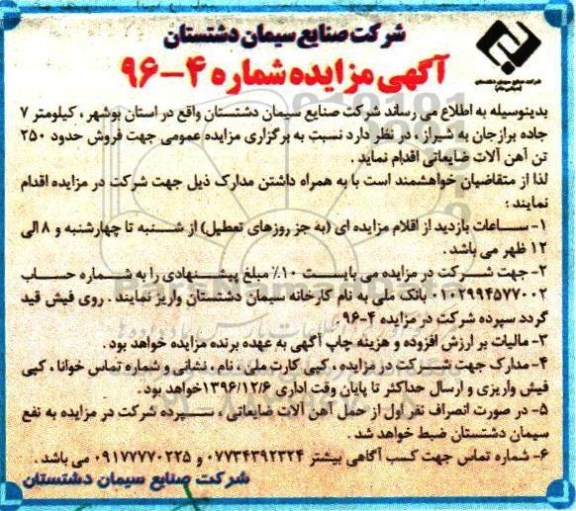 شرکت صنایع سیمان دشتستان
آگهی مزایده شماره ۴-۹۶
شرکت صنایع سیمان دشتستان
بدینوسیله به اطلاع می رساند شرکت صنایع سیمان دشتستان واقع در استان بوشهر ، کیلومتر ۷
جاده برازجان به شیراز ، در نظر دارد نسبت به برگزاری مزایده عمومی جهت فروش حدود ۲۵۰
تن آهن آلات ضایعاتی اقدام نماید .
لذا از متقاضیان خواهشمند است با به همراه داشتن مدارک ذیل جهت شرکت در مزایده اقدام
نمایند :
۱- ساعات بازدید از اقلام مزایده ای (به جز روزهای تعطیل) از شنبه تا چهارشنبه و ۸ الی
۱۲ ظهر می باشد .
۲- جهت شرکت در مزایده می بایست ۱۰٪ مبلغ پیشنهادی را به شماره حساب
۰۱۰۲۹۹۴۵۷۷۰۰۲ بانک ملی به نام کارخانه سیمان دشتستان واریز نمایند . روی فیش قید
گردد سپرده شرکت در مزایده ۴-۹۶ .
۳- مالیات بر ارزش افزوده و هزینه چاپ آگهی به عهده برنده مزایده خواهد بود .
۴- مدارک جهت شرکت در مزایده ، کپی کارت ملی ، نام ، نشانی و شماره تماس خوانا ، کپی
فیش واریزی و ارسال حداکثر تا پایان وقت اداری ۱۳۹۶/۱۲/۶ خواهد بود .
۵- در صورت انصراف نفر اول از حمل آهن آلات ضایعاتی ، سپرده شرکت در مزایده به نفع
سیمان دشتستان ضبط خواهد شد .
۶- شماره تماس جهت کسب آگاهی بیشتر ۰۷۷۳۴۳۹۲۳۲۴ و ۰۹۱۷۷۷۷۰۲۲۵ می باشد .
شرکت صنایع سیمان دشتستان